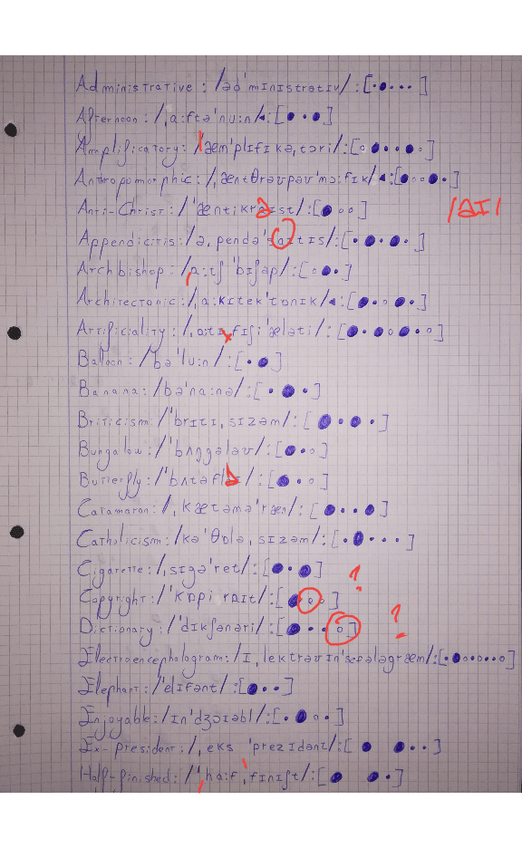 Administrative : /əd'mɪnɪstrətɪv/ : [•●•••]
Afternoon : /ˌɑ:ftə'nu:n/ : [●•●]
Amplificatory : /ˌæm'plɪfɪkəˌtɔri/ : [○●••●○]
Anthropomorphic : /ˌæntθrəʊpəʊ'mɔ:fɪk/ : [●○○●•]
Anti-Christ : /'æntikraɪst/ : [●○○] /aɪ/
Appendicitis : /əˌpendə'saɪtɪs/ : [•●•●•]
Archbishop : /ˌɑ:tʃ'bɪʃəp/ : [○●•]
Architectonic : /ˌɑ:kɪtek'tɒnɪk/ : [●•○●•]
Artificiality : /ˌɑ:tɪˌfɪʃi'æləti/ : [●•●○●•○]
Balloon : /bə'lu:n/ : [•●]
Banana : /bə'nɑ:nə/ : [•●•]
Briticism : /'brɪtɪˌsɪzəm/ : [●•●•]
Bungalow : /'bʌŋgələʊ/ : [●•○]
Butterfly : /'bʌtəflaɪ/ : [●•○]
Catamaran : /ˌkætəmə'ræn/ : [●••●]
Catholicism : /kə'θɒləˌsɪzəm/ : [•●•••]
Cigarette : /ˌsɪgə'ret/ : [●•●] ?
Copyright : /'kɒpiˌraɪt/ : [●○○] ?
Dictionary : /'dɪkʃənəri/ : [●••○]
Electroencephalogram : /ɪˌlektrəʊɪn'sefələgræm/ : [•●○○○○○]
Elephant : /'elɪfənt/ : [●••]
Enjoyable : /ɪn'dʒɔɪəbl/ : [•●○•]
Ex-president : /ˌeks 'prezɪdənt/ : [● ●••]
Half-finished : /'ˌhɑ:f 'ˌfɪnɪʃt/ : [● ●•]